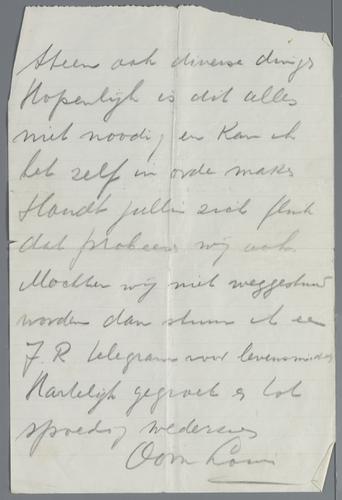 Steen ook diverse dings
Hopenlijk is dit alles
niet noodig en kan ik
het zelf in orde maken
Houdt jullie zich flink
dat probeeren wij ook.
Mochten wij niet weggestuurd
worden dan stuur ik een
J. R. telegram voor levensmiddel
Hartelijk gegroet en tot
spoedig wederzien
Oom Louis